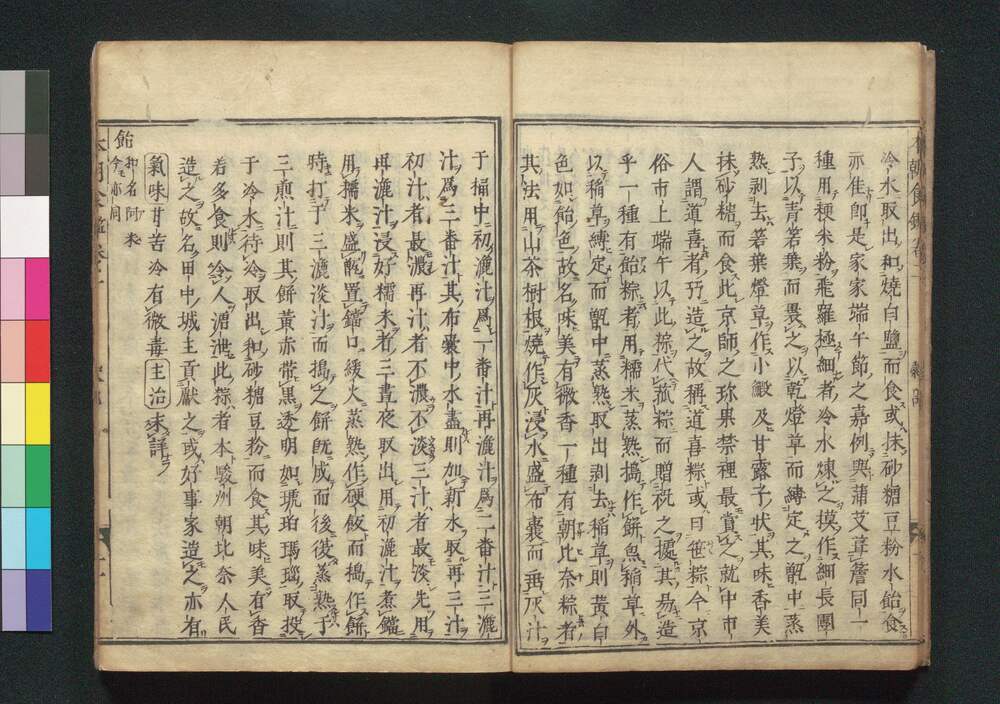 冷水取出和燒白鹽而食或抹砂糖豆粉水飴食
亦佳卽是家家端午節之嘉例與蒲艾葺簷同一
種用粳米粉飛羅極細者冷水煉之摸作細長團
子以青箬葉而裹之以乾燈草而縛定之甑中蒸
熟剥去箬葉燈草作小 及甘露子狀其味香美
抹砂糖而食此京師之珍果禁裡最賞之就中市
人謂道喜者巧造之故稱道喜粽或曰笹粽今京
俗市上端午以此粽代菰粽而贈祝之據其易造
乎一種有飴粽者用糯米蒸熟搗作餅魚稲草外
以稲草縛定而甑中蒸熟取出剥去稲草則黃白
色如飴色故名味美有微香一種有朝比奈粽者
其法用山茶樹根燒作灰浸水盛布嚢而垂灰汁
于桶中初漉汁爲一番汁再漉汁爲二番汁三漉
汁爲三番汁其布嚢中水盡則加新水取再三汁
初汁者最濃再汁者不濃不淡三汁者最淡先用
再漉汁浸好糯米者三晝夜取出用初漉汁煮鐺
用糯米盛甑置鐺口緩火蒸熟作硬飯而搗作餅
時打于三漉淡汁而搗之餅旣成而後復蒸熟于
三煎汁則其餅黃赤帶黒透明如琥珀瑪瑙取投
于冷水待冷取出和砂糖豆粉而食其味美有香
若多食則令人溏泄此粽者本駿州朝比奈人民
造之故名田中城主貢獻之或好事家造之亦有
氣味甘苦冷有微毒主治未詳
飴
和名阿米
今亦同